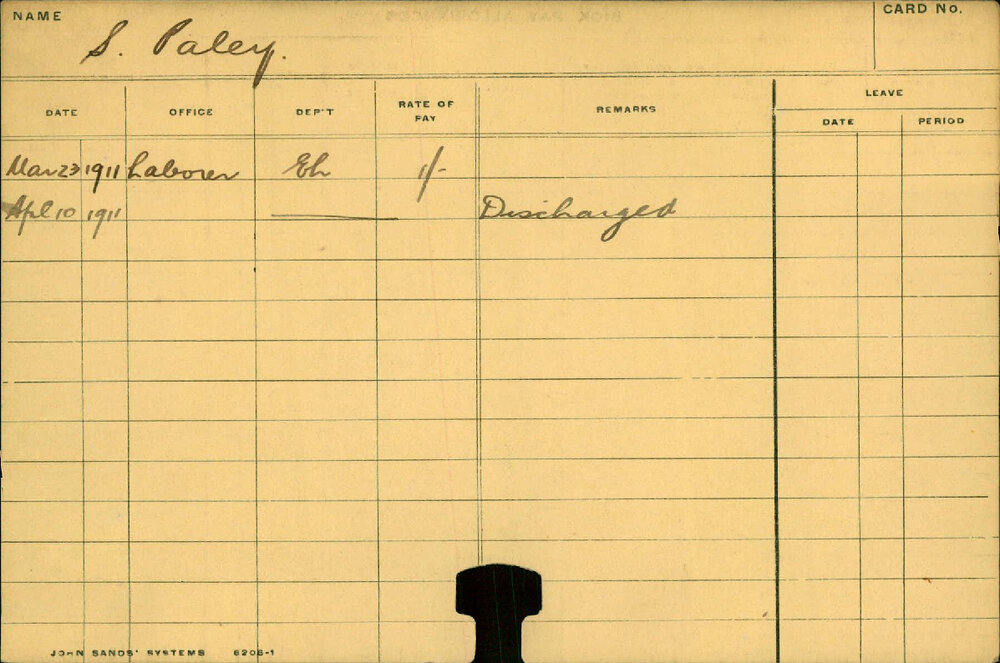 NAME
S. Paley.
CARD No.
DATE OFFICE DEP'T RATE OF PAY REMARKS LEAVE
DATE PERIOD
Mar 23 1911 Laborer Eh 1/-
Apl 10 1911 Discharged
JOHN SANDS' SYSTEMS 6206-1